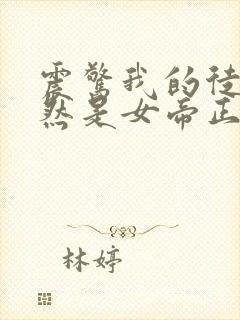 震惊我的徒
然是女帝正
林婷